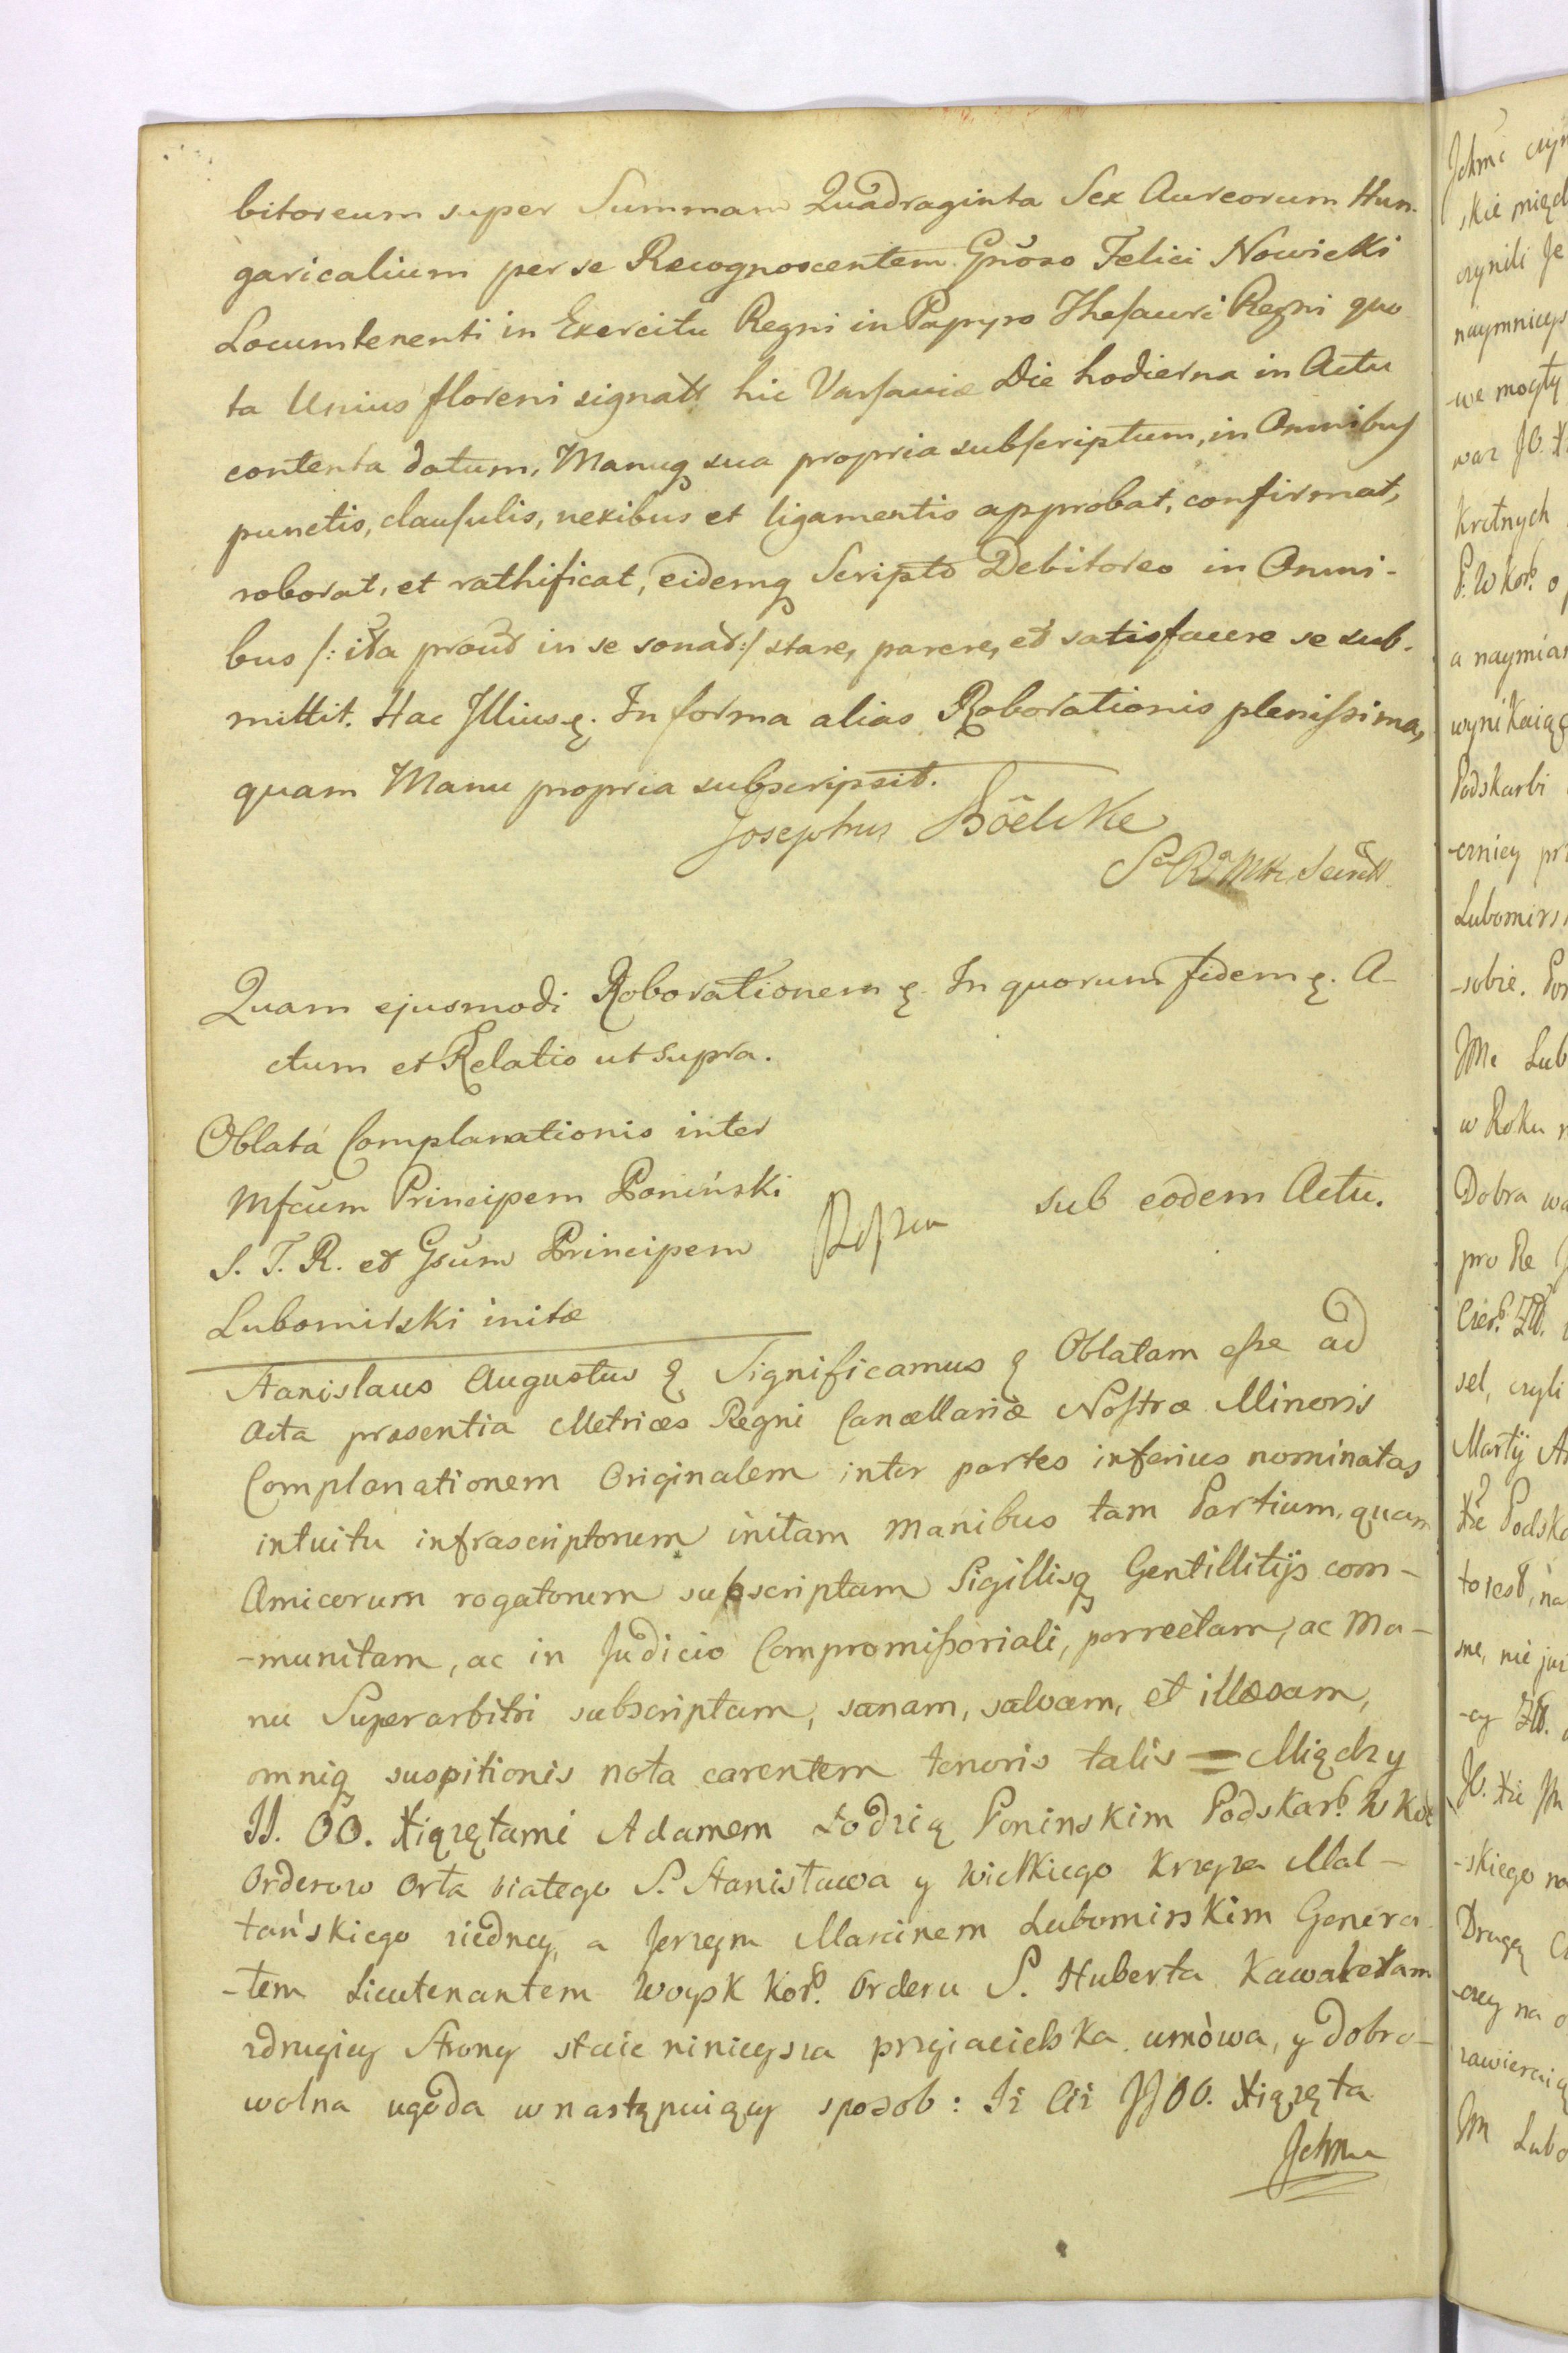 bitoreum super Summam Quadraginta Sex Aureorum Hun-
garicalium per se Recognoscentem Gñoso Felici Nowicki
Locumtenenti in Exercitu Regni in Papyro Thesauri Regni quo
ta Unius floreni signatt hic Varsaviæ Die hodierna in Actu
contenta datum, Manuq sua propria subscriptum, in Omnibus
punctis, clausulis, nexibus et ligamentis approbat, confirmat,
roborat, et rathificat, eidemq Scripto Debitoreo in Omni-
bus /: ita prout in se sonat :/ stare, parere, et satisfacere se sub-
mittit. Hac Illius &. In forma alias Roborationis plenissima,
quam Manu propria subscripsit.
Josephus Böelcke
Quam ejusmodi Roborationem &. In quorum fidem &. A-
ctum et Relatio ut supra.
Oblata Complanationis inter
Mfcum Principem Poniński
S. T. R. et Gsum Principem
Lubomirski initæ
sub eodem Actu.
Stanislaus Augustus & Significamus & Oblatam esse ad
Acta præsentia Metrices Regni Cancellariæ Nostræ Minoris
Complanationem Originalem inter partes inferius nominatas
intuitu infrascriptorum initam Manibus tam Partium, quam
Amicorum rogatorum subscriptam Sigillisq Gentillitijs com-
-munitam, ac in Judicio Compromissoriali, porrectam, ac Ma-
nu Superarbitri subscriptam, sanam, salvam, et illæsam,
omniq suspitionis nota carentem tenoris talis = Między
JJ. OO. Xiążętami Adamem Łodzią Poninskim Podskarb. W Kor
Orderow Orła białego S. Stanisława y Wielkiego Krzyża Mal-
tańskiego ziedney, a Jerzym Marcinem Lubomirskim Genera-
-łem Lieutenantem Woysk Kor. Orderu S. Huberta Kawalerem
zdrugiey Strony staie ninieysza przyiacielska umòwa, y dobro-
wolna ugoda w następuiący sposob: Iż Ciż JJ OO. Xiążęta
Jchmć